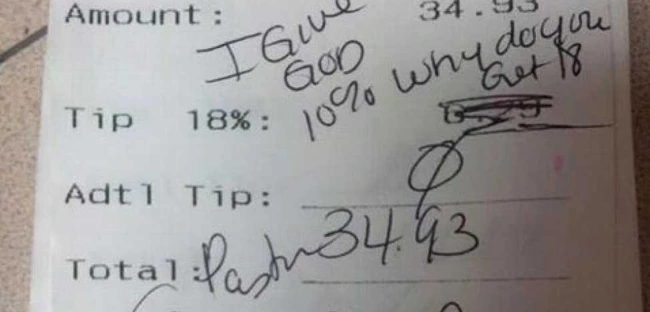 Amount: 34.93
I Give
GOD
10% Why do you
Get 18
Tip 18%:
Adtl Tip: 0
Total: Pastor 34.93